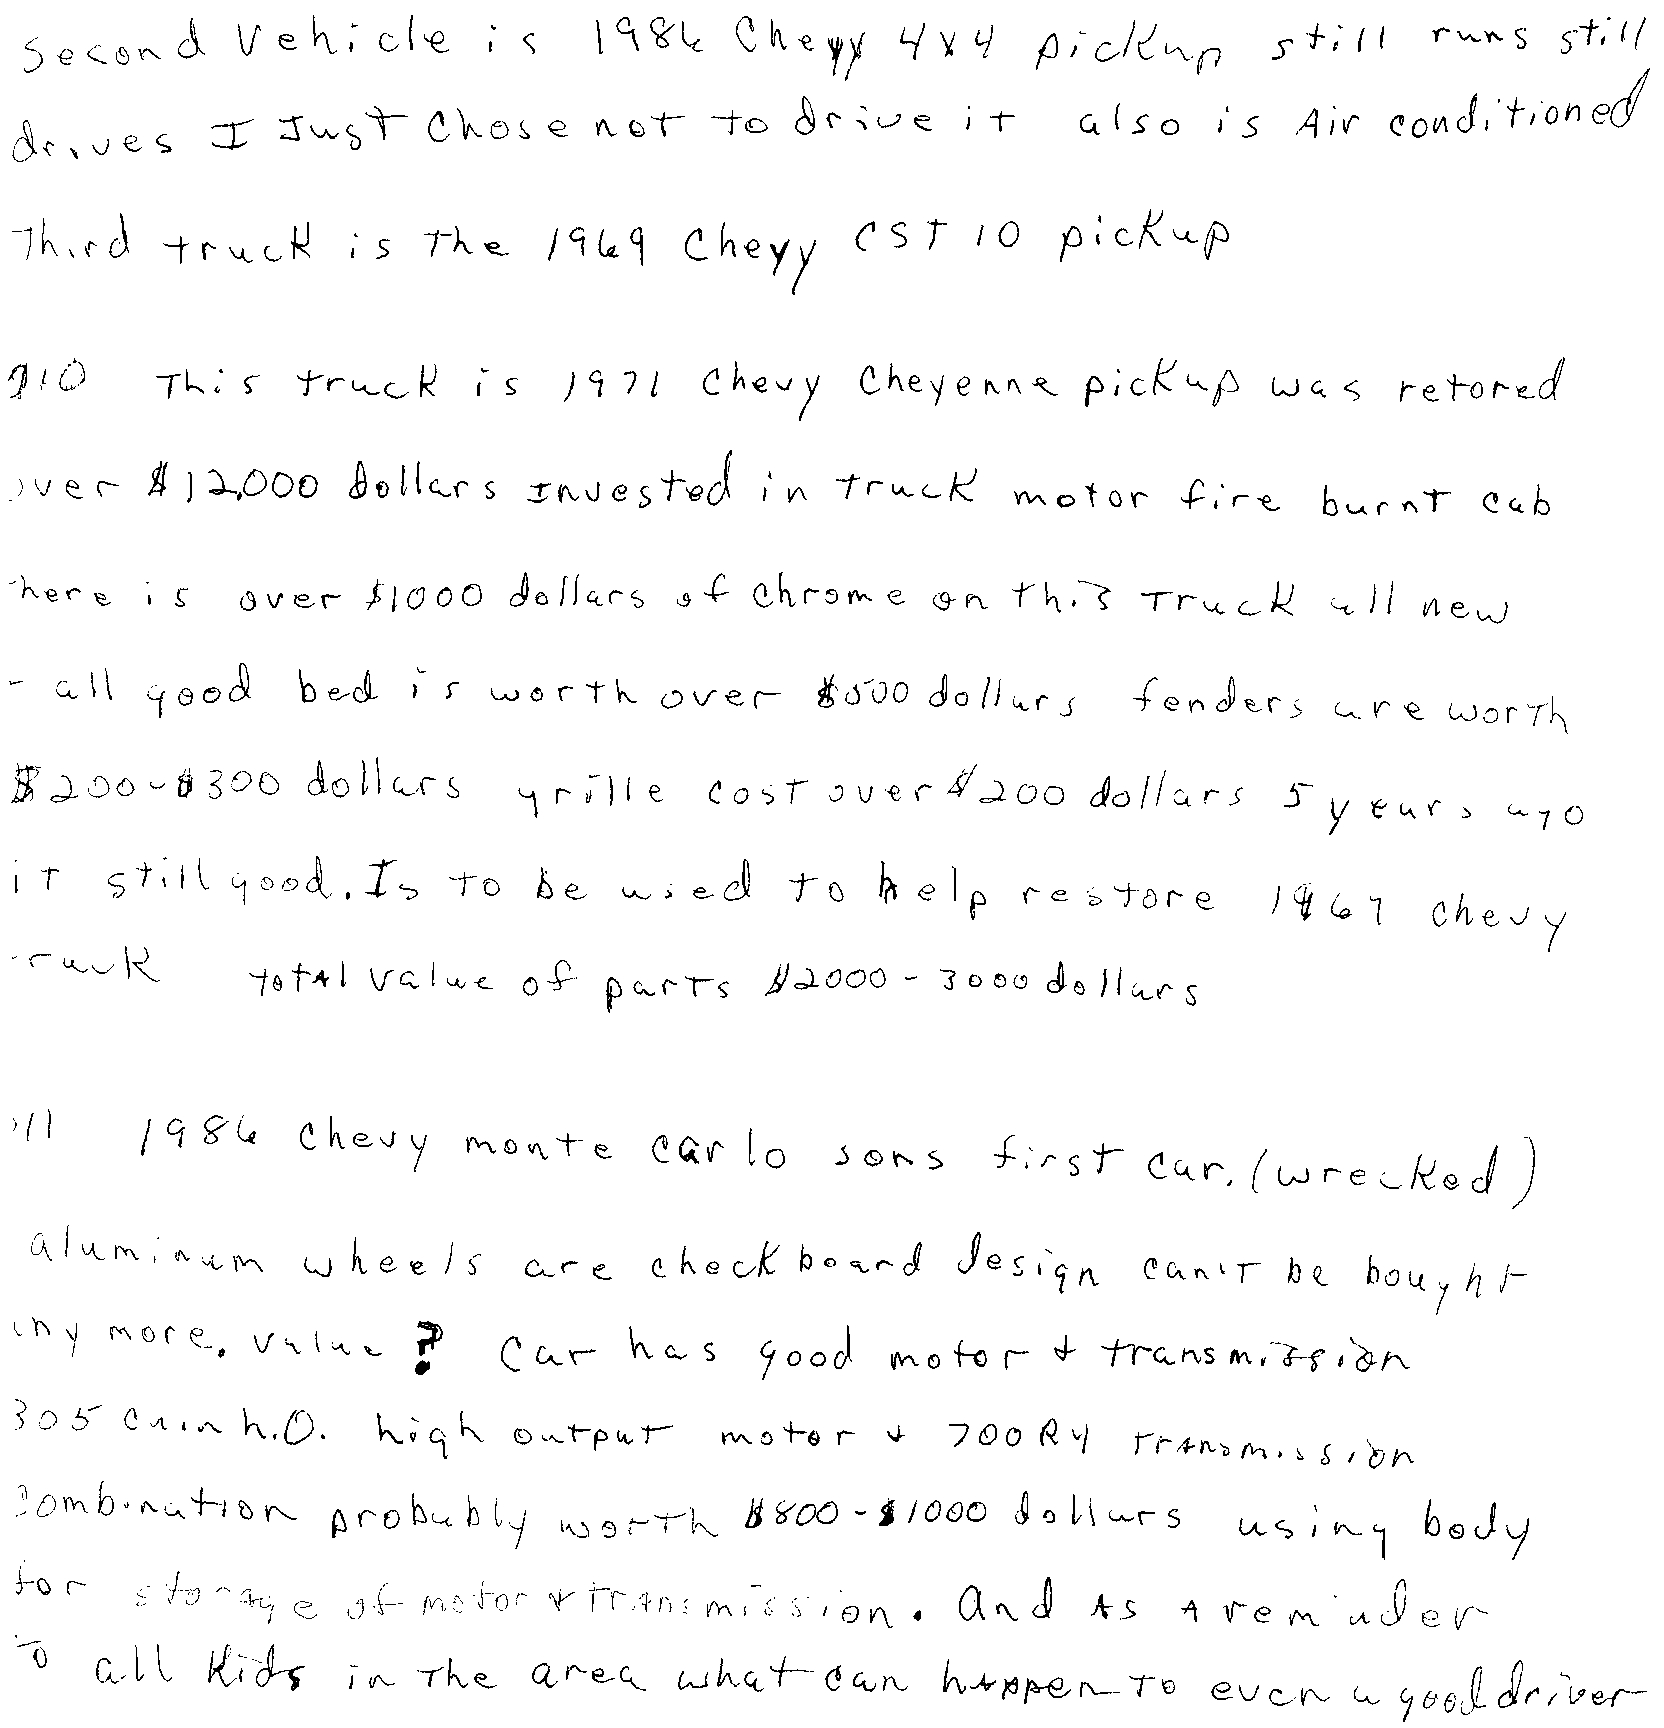 Second Vehicle is 1986 Chevy 4x4 pickup still runs still
drives I Just Chose not to drive it also is Air conditioned
Third truck is The 1969 Chevy CST 10 pickup
#10 This truck is 1971 Chevy Cheyenne pickup was retored
over $12,000 dollars Invested in truck motor fire burnt cab
here is over $1000 dollars of Chrome on this Truck all new
- all good bed is worth over $500 dollars fenders are worth
$200-$300 dollars grille cost over $200 dollars 5 years ago
it still good. Is to be used to help restore 1967 Chevy
ruck total value of parts $2000-3000 dollars
11 1986 Chevy monte carlo sons first car. (wrecked)
aluminum wheels are checkboard design can't be bought
any more. value? Car has good motor + transmission
305 cuin h.O. high output motor + 700R4 transmission
Combination probably worth $800-$1000 dollars using body
for storage of motor + transmission. And As A reminder
To all Kids in The area what can happen To even a good driver